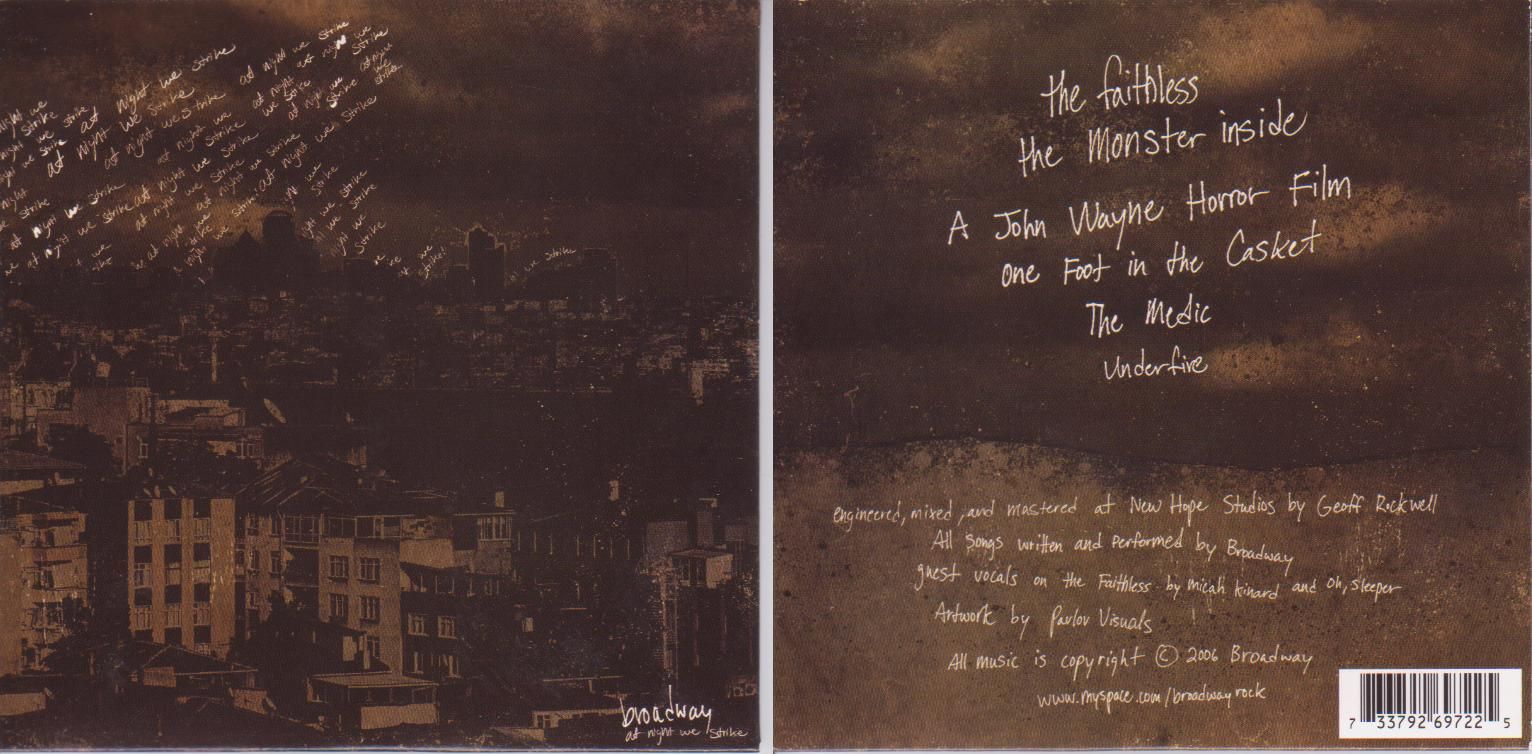 at night we strike
at night we strike
at night we strike
at night we strike
at night we strike
at night we strike
at night we strike
at night we strike
at night we strike
at night we strike
at night we strike
we strike
broadway
at night we strike
the faithless
the Monster inside
A John Wayne Horror Film
one Foot in the Casket
The Medic
Underfire
engineered, mixed, and mastered at New Hope Studios by Geoff Rockwell
All songs written and performed by Broadway
guest vocals on the Faithless by micah kinard and oh, sleeper
Artwork by Pavlov Visuals
All music is copyright © 2006 Broadway
www.myspace.com/broadwayrock
7 33792 69722 5